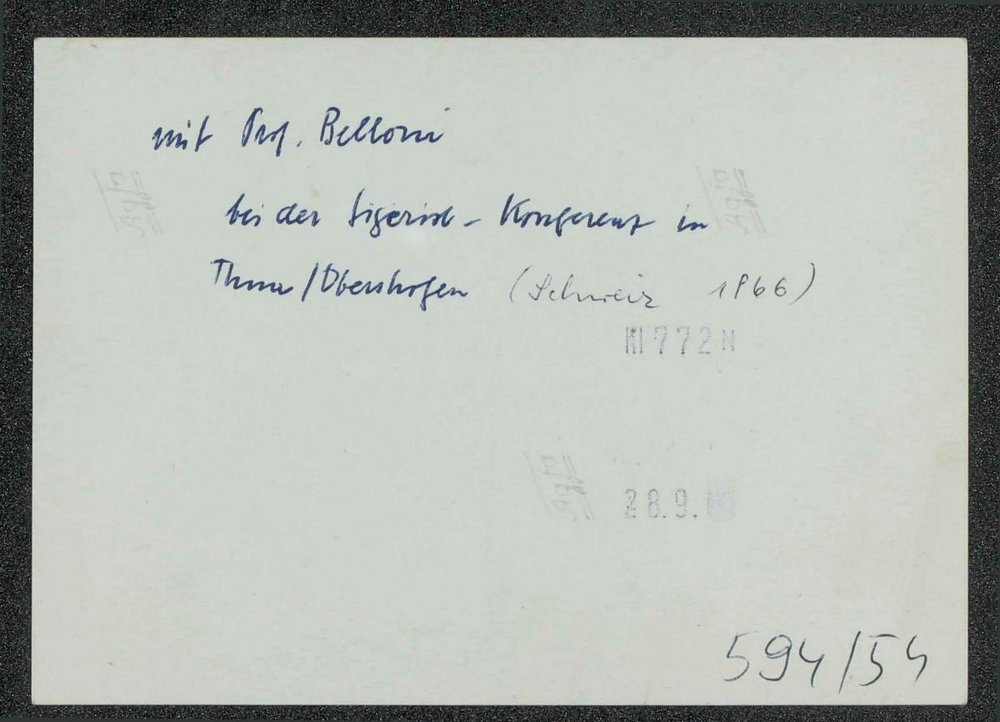 mit Prof. Belloni
bei der Sigerist-Konferenz in
Thun/Obershofen (Schweiz 1966)
772
28.9.
594/54